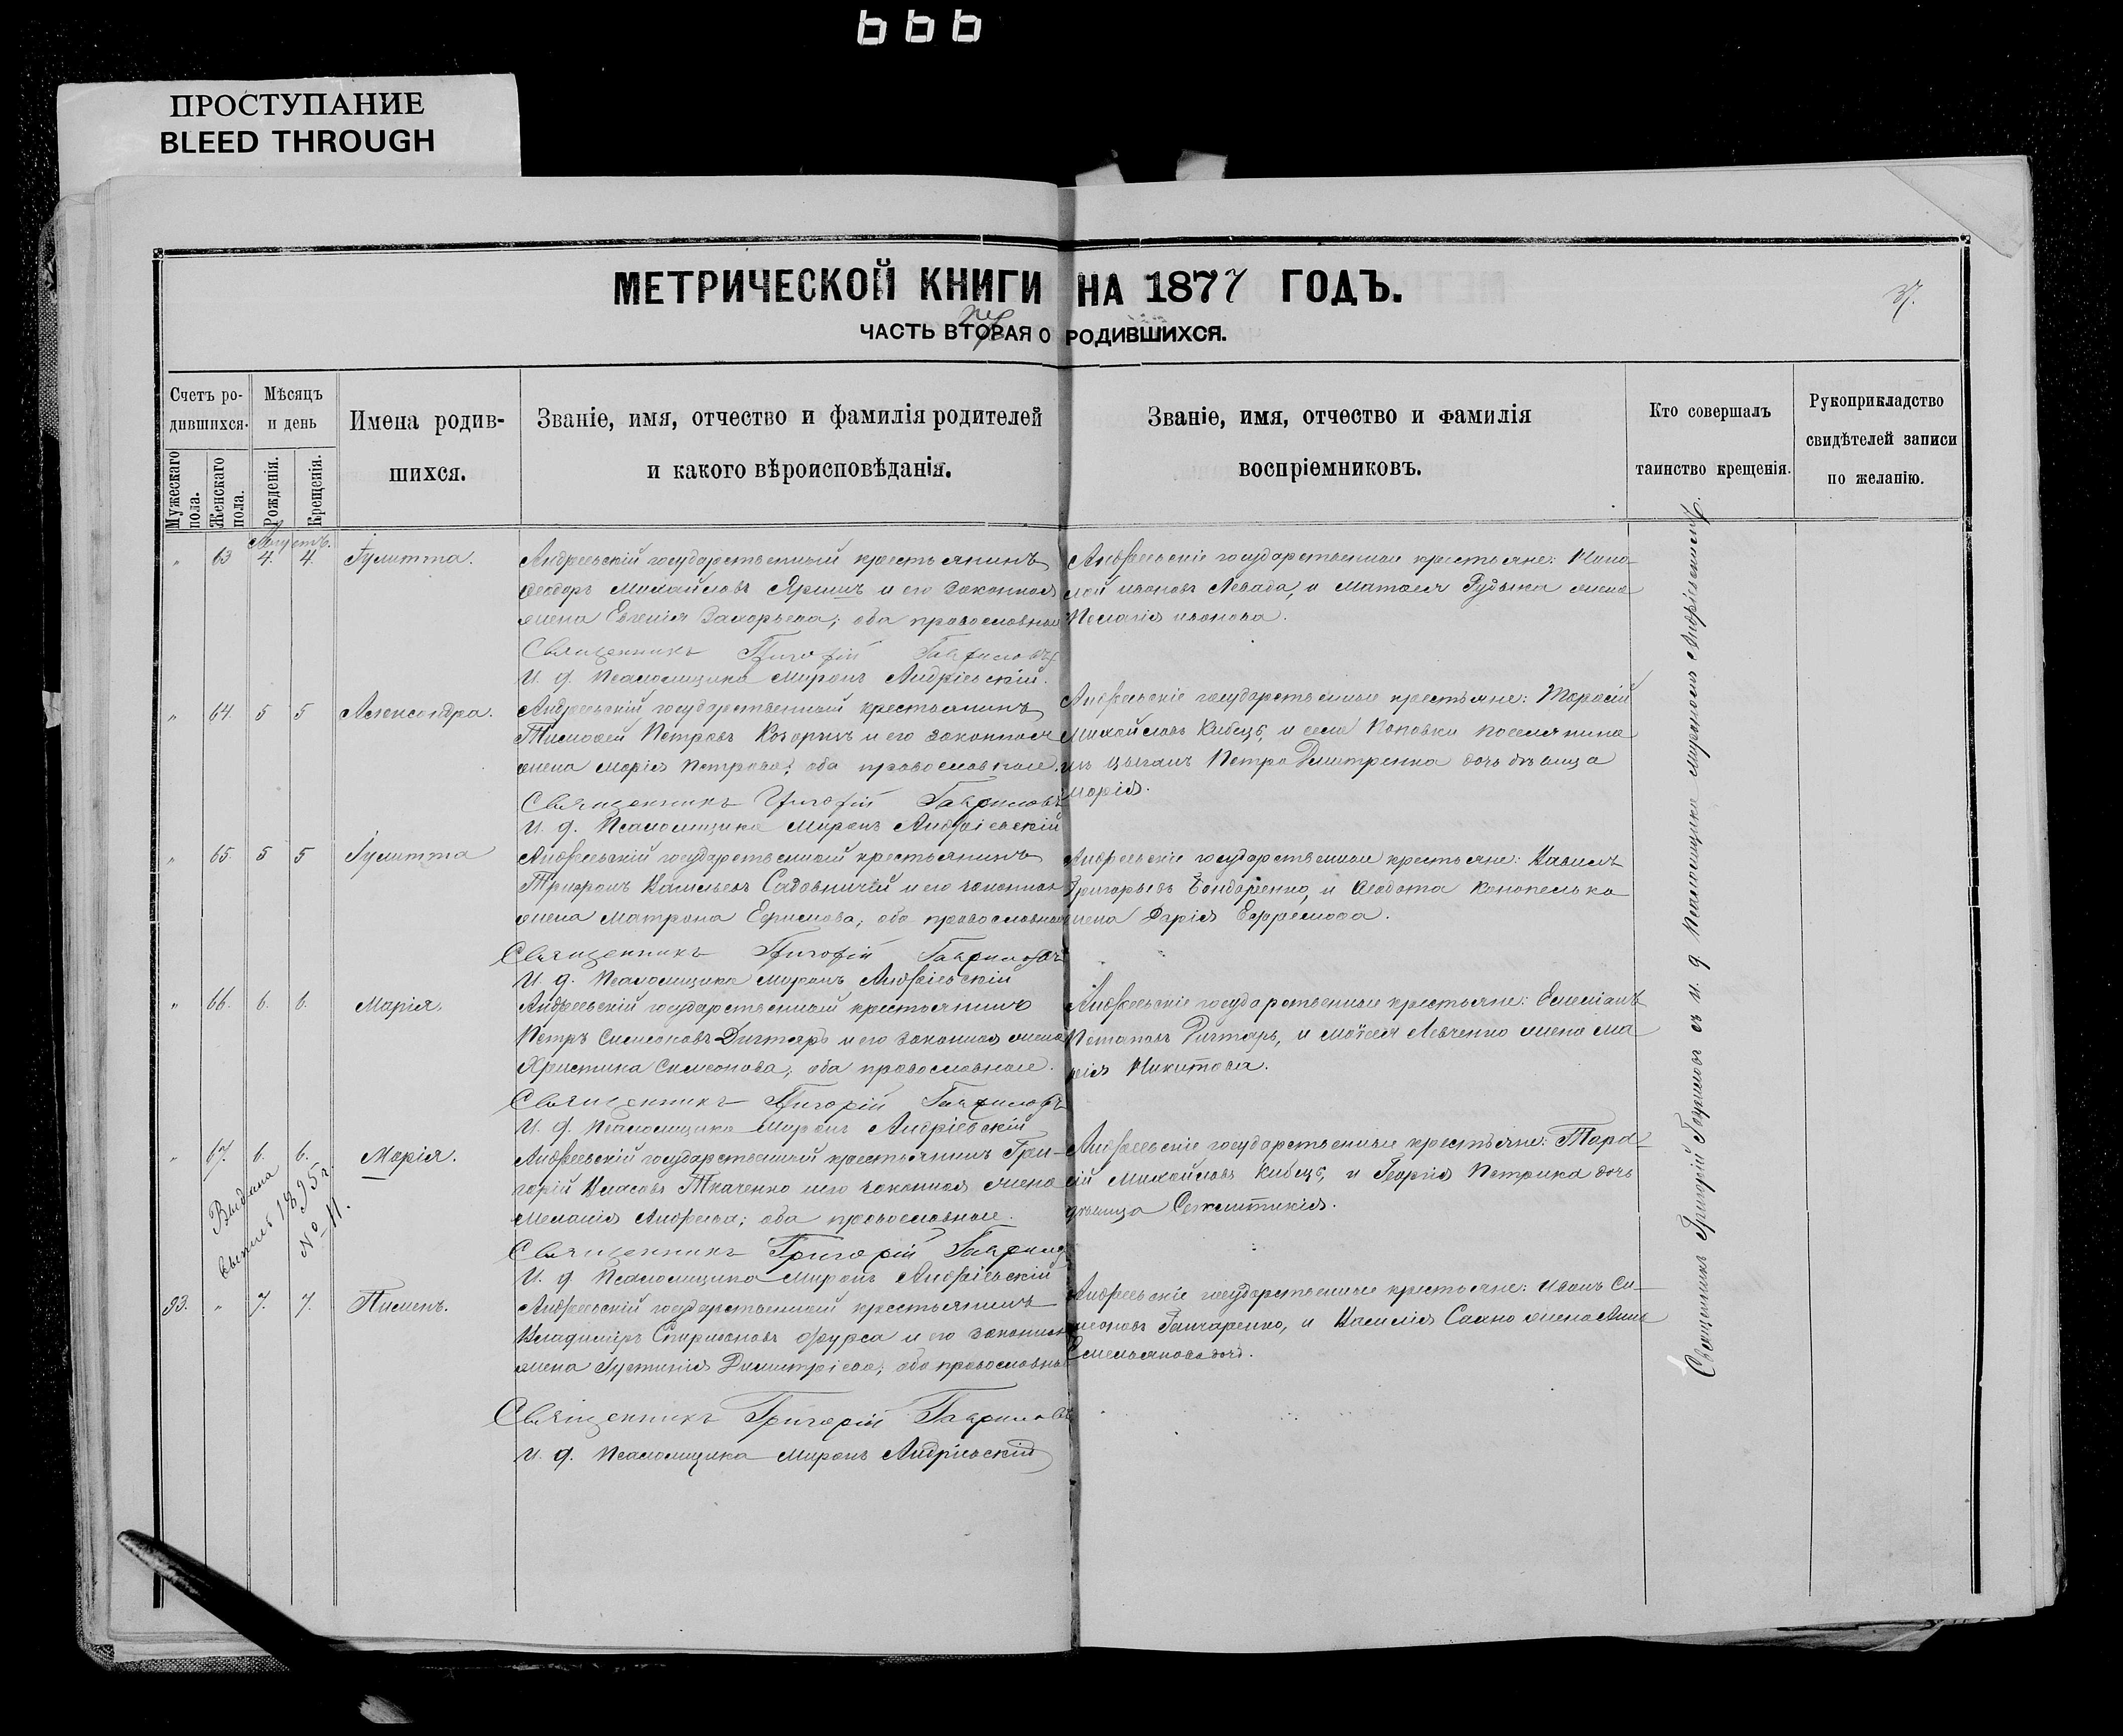 666
ПРОСТУПАНИЕ
BLEED THROUGH
МЕТРИЧЕСКОЙ КНИГИ НА 1877 ГОДЪ.
37.
ЧАСТЬ ВТОРАЯ О РОДИВШИХСЯ.
Счетъ ро-
дившихся.
Мужескаго пола.
Женскаго пола.
Мѣсяцъ
и день
Рожденія.
Крещенія.
Имена родив-
шихся.
Званіе, имя, отчество и фамилія родителей
и какого вѣроисповѣданія.
Званіе, имя, отчество и фамилія
воспріемниковъ.
Кто совершалъ
таинство крещенія.
Рукоприкладство
свидѣтелей записи
по желанію.
Августъ.
" 63 4. 4. Іулитта.
Андреевскій государственный крестьянинъ
Феодоръ Михайловъ Яришъ и его законная
жена Евгенія Захарьева; оба православные
Священникъ Григорій Гавриловъ
И. д. Псаломщика Миронъ Андріевскій.
Андреевскіе государственные крестьяне:
Ивановъ Левада, и Матвея Рудыка жена
Пелагія Иванова.
" 64. 5 5 Александра.
Андреевскій государственный крестьянинъ
Тимофей Петровъ и его законная
жена Марія Петрова; оба православные.
Священникъ Григорій Гавриловъ
И. д. Псаломщика Миронъ Андріевскій
Андреевскіе государственные крестьяне: Тарасій
Михайловъ Кибецъ, и села Поповки поселянина
изъ цыганъ Петра Дмитренка дочь дѣвица
Марія.
" 65. 5 5 Іулитта
Андреевскій государственный крестьянинъ
Трифонъ Васильевъ Садовничій и его законная
жена Матрона Ефимова; оба православные
Священникъ Григорій Гавриловъ
И. д. Псаломщика Миронъ Андріевскій
Андреевскіе государственные крестьяне: Павелъ
Григорьевъ Бондаренко, и Федота Конопелько
жена Дарія Ефремова.
" 66. 6. 6. Марія.
Андреевскій государственный крестьянинъ
Петръ Симеоновъ Дигтярь и его законная жена
Христина Симеонова; оба православные.
Священникъ Григорій Гавриловъ
И. д. Псаломщика Миронъ Андріевскій
Андреевскіе государственные крестьяне: Емеліанъ
Потаповъ Дигтярь, и Моѵсея Левченко жена Ма
рія Никитова.
" 67. 6. 6. Марія.
Выдана
выпись 1895 г.
№ 11.
Андреевскій государственный крестьянинъ Гри-
горій Власовъ Ткаченко и его законная жена
Меланія Андреева; оба православные.
Священникъ Григорій Гаврилов
И. д. Псаломщика Миронъ Андріевскій
Андреевскіе государственные крестьяне: Тара
сій Михайловъ Кибецъ, и Георгія Петрика дочь
дѣвица
93. " 7. 7. Пименъ.
Андреевскій государственный крестьянинъ
Владиміръ Спиридоновъ Фурса и его законная
жена Іустинія Димитріева; оба православные
Священникъ Григорій Гавриловъ
И. д. Псаломщика Миронъ Андріевскій
Андреевскіе государственные крестьяне: Иванъ Си-
меоновъ Ганчаренко, и Василія Сахно жена Анна
Емельянова дочь.
Священникъ Григорій Гавриловъ съ и. д. Псаломщика Мирономъ Андріевскимъ.